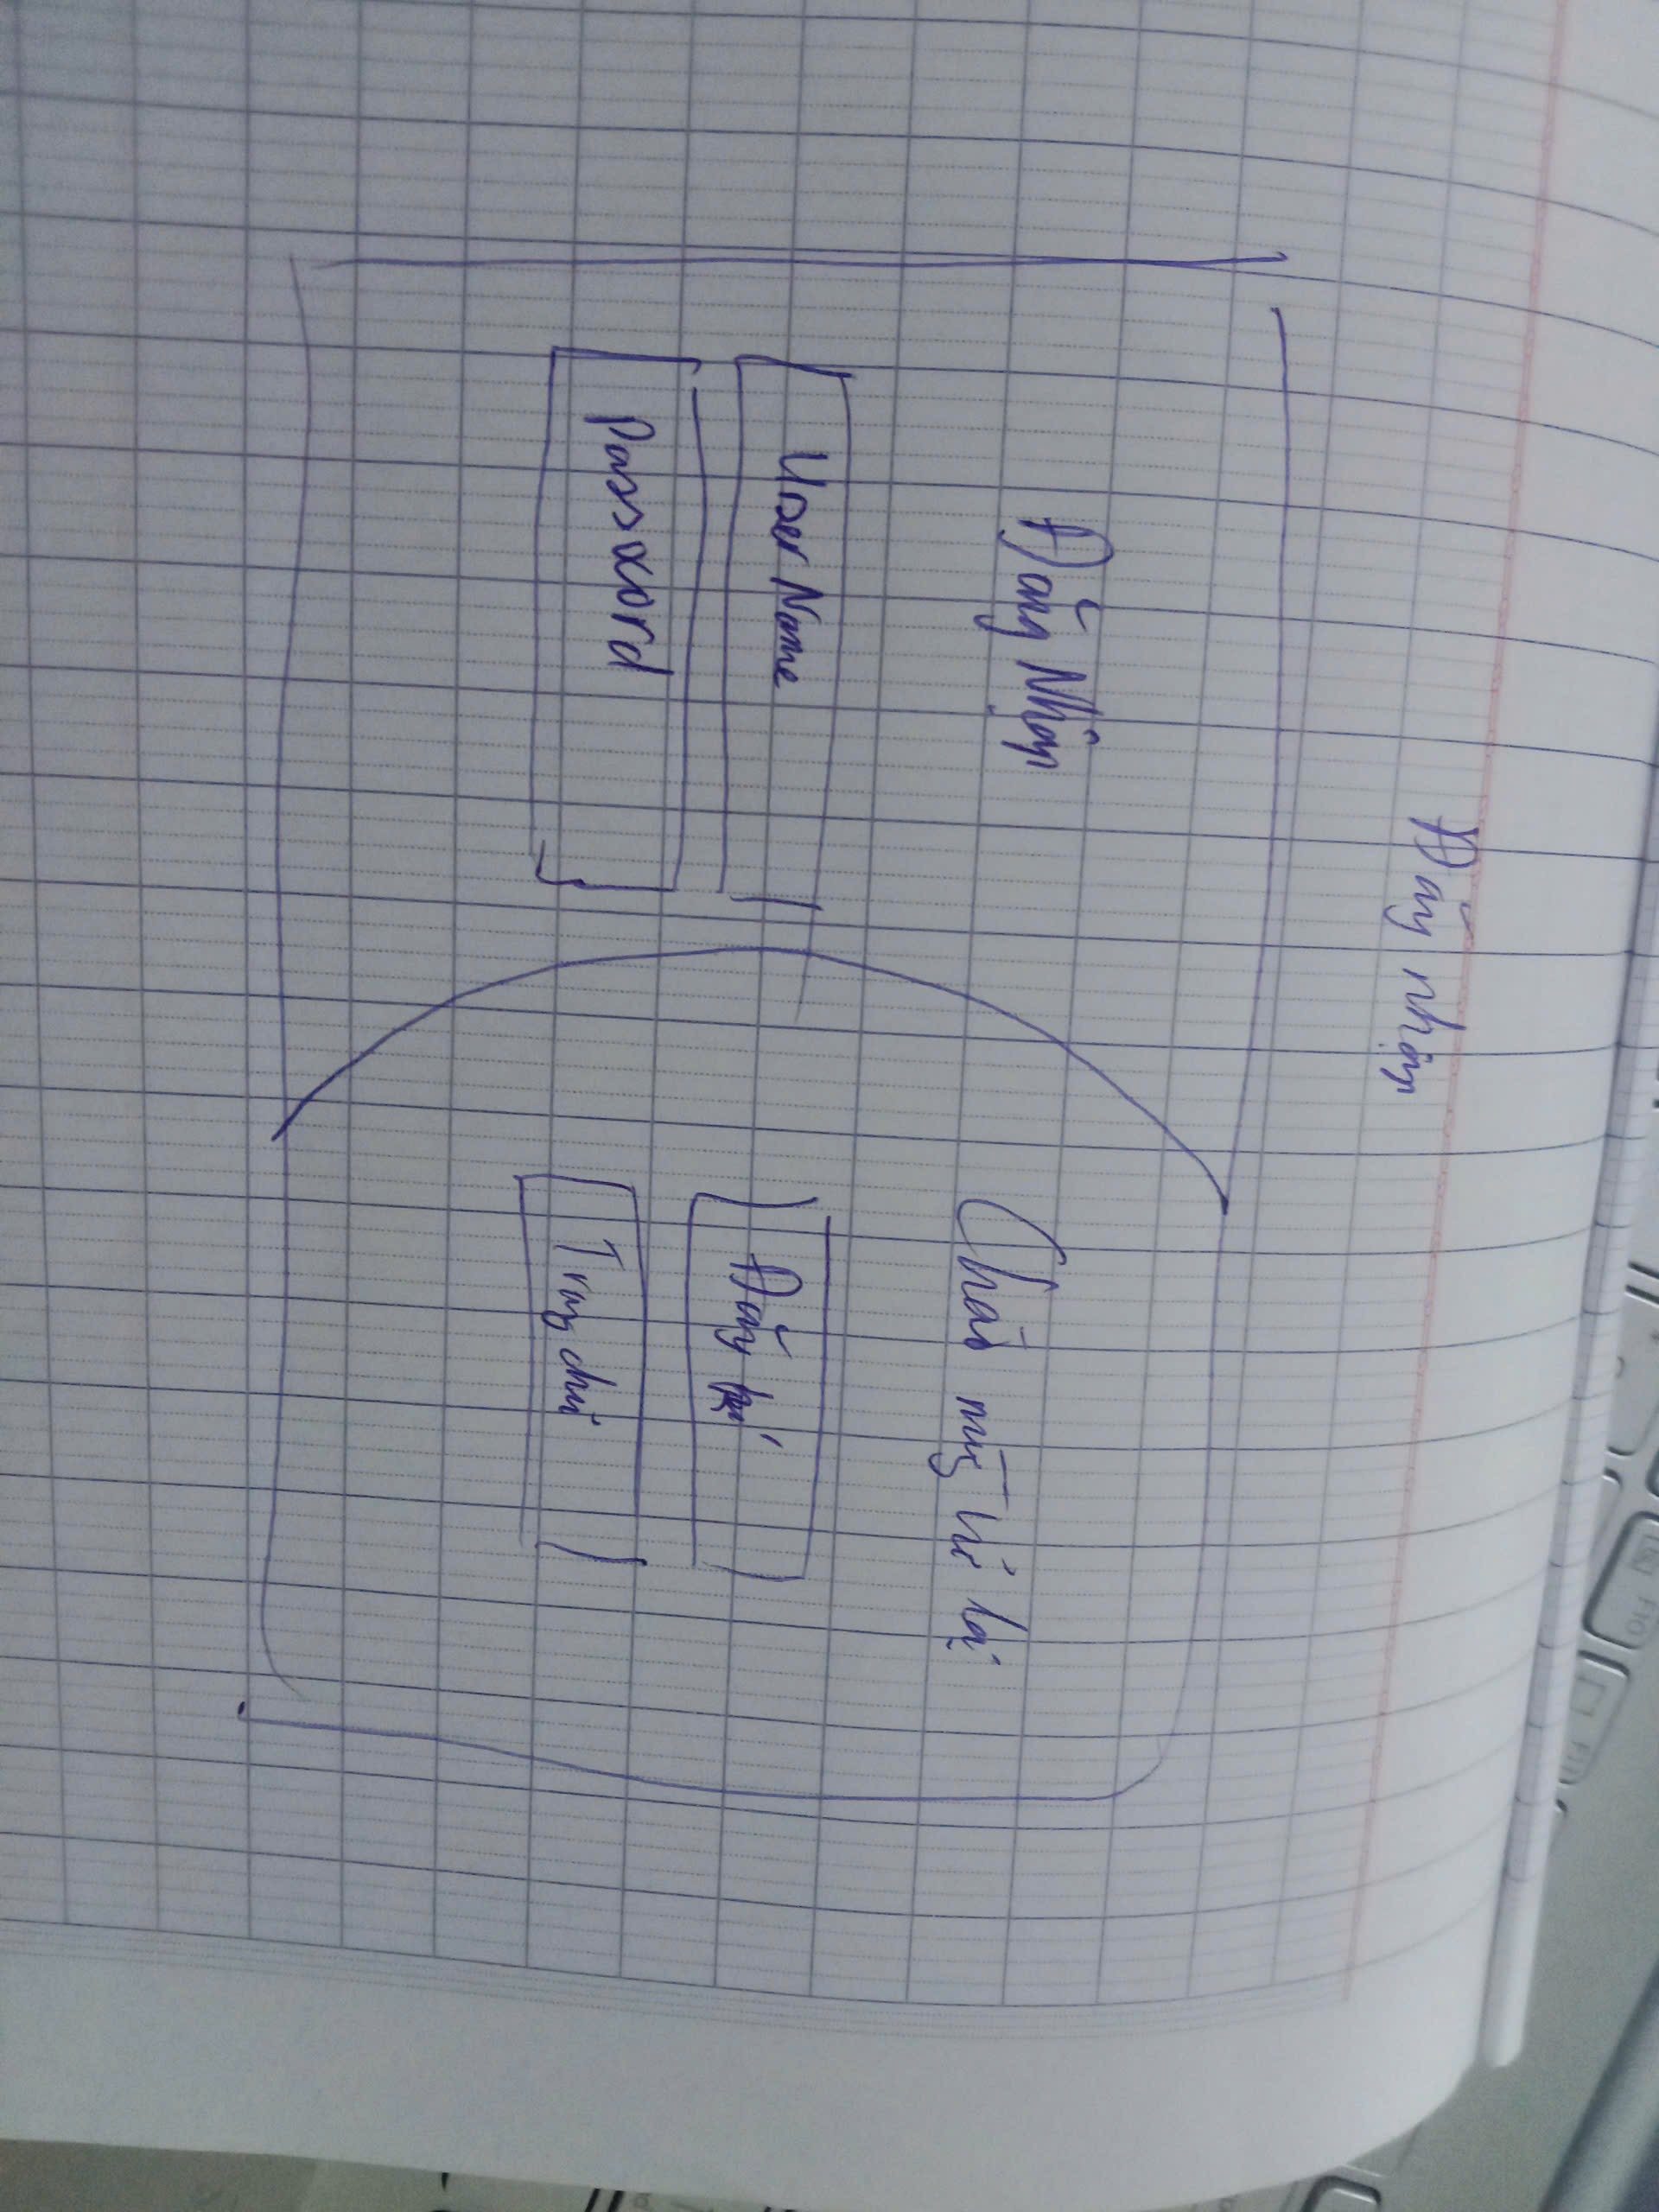 Đăng nhập
Đăng Nhập
User Name
Password
Chào mừng trở lại
Đăng ký
Trang chủ